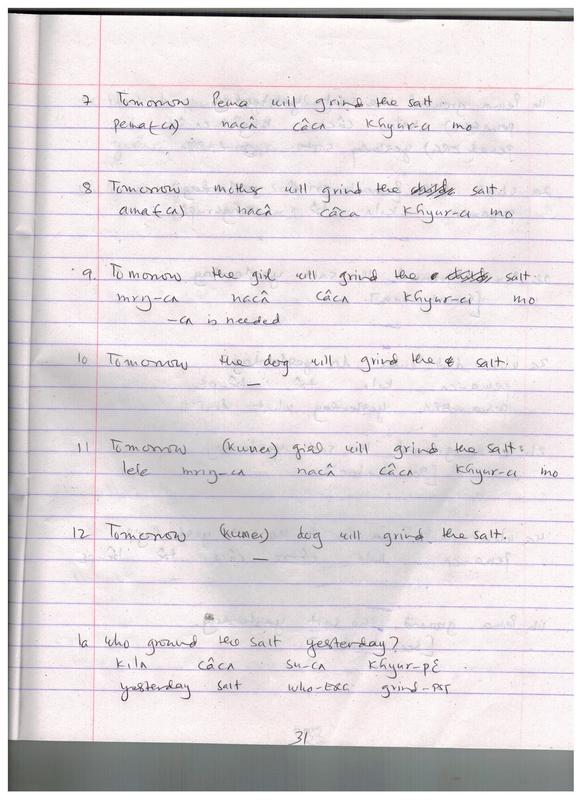 7 Tomorrow Pema will grind the salt.
pema(-cʌ) nacʌ̂ câcʌ khyur-ci mo
8 Tomorrow mother will grind the salt.
ama(-cʌ) nacʌ̂ câcʌ khyur-ci mo
9. Tomorrow the girl will grind the salt.
mrŋ-cʌ nacʌ̂ câcʌ khyur-ci mo
-cʌ is needed
10 Tomorrow the dog will grind the salt.
—
11 Tomorrow (kuner) girl will grind the salt:
lefe mrŋ-cʌ nacʌ̂ câcʌ khyur-ci mo
12 Tomorrow (kuner) dog will grind the salt.
—
1a who ground the salt yesterday?
kilʌ câcʌ su-cʌ khyur-pɛ
yesterday salt who-ERG grind-PST
31